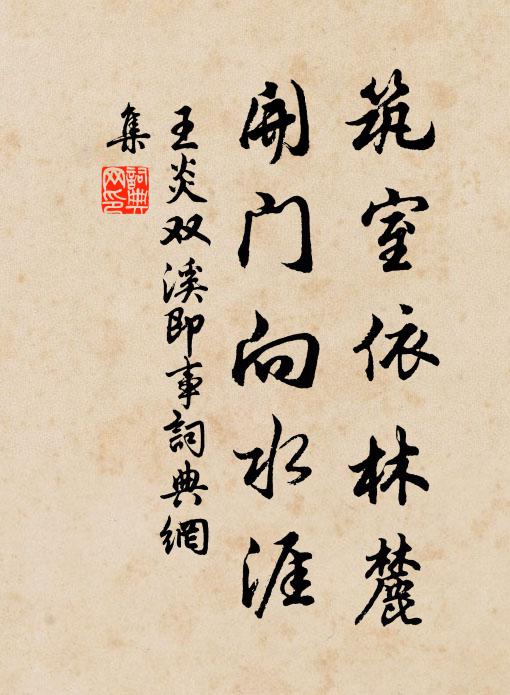 筑室依林麓
开门向水涯
王炎双溪即事詞典網
集
詞典网印